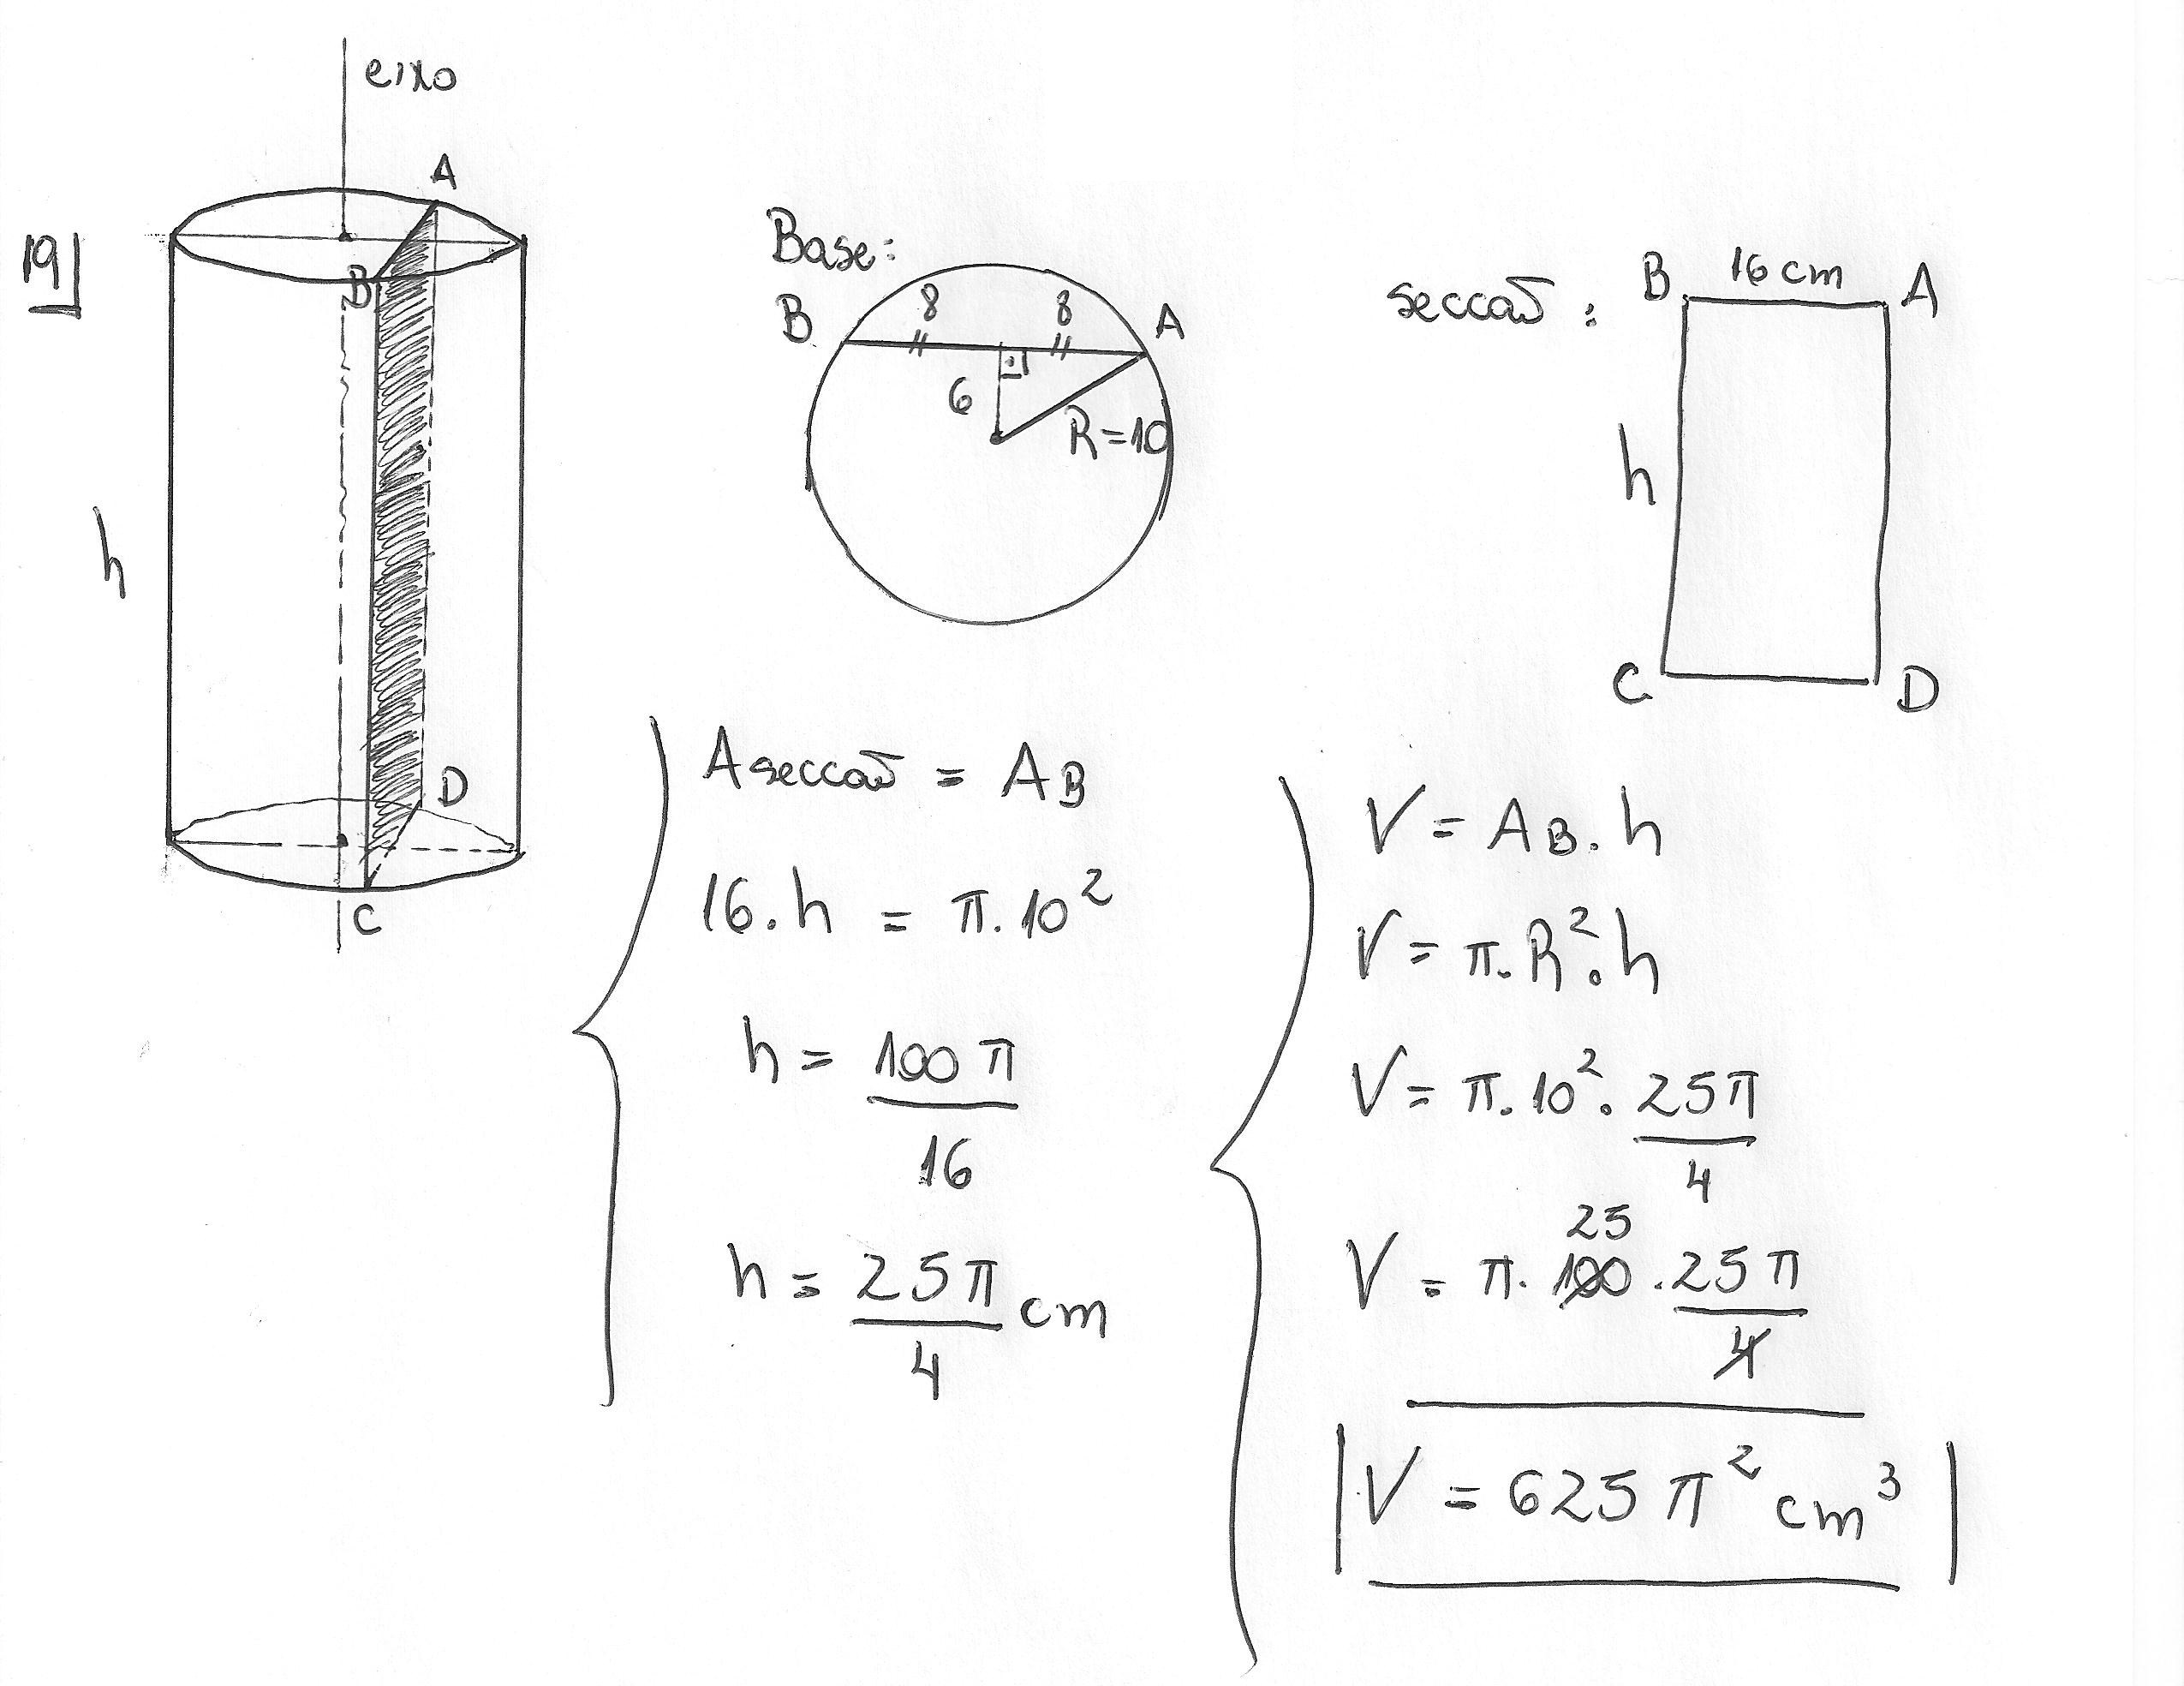 19]
eixo
A
B
h
D
C
Base:
B
8
8
A
6
R=10
secção:
B
16 cm
A
h
C
D
A secção = AB
16.h = π.10²
h = 100π/16
h = 25π/4 cm
V = AB.h
V = π.R².h
V = π.10².25π/4
25
V = π.100.25π/4
V = 625π² cm³